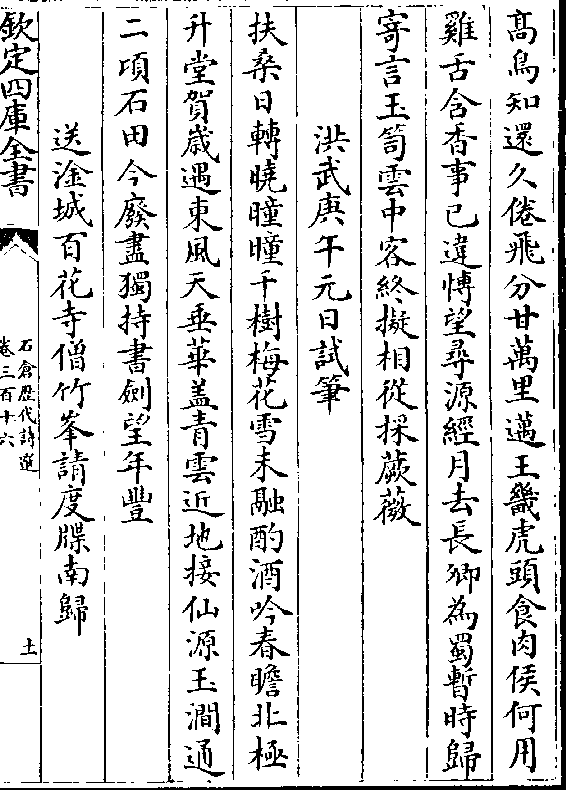 髙鳥知還久倦飛分甘萬里邁王畿虎頭食肉侯何用
雞舌含香事已違愽望尋源經月去長卿為蜀暫時歸
寄言玉笥雲中客終擬相從採蕨薇
洪武庚午元日試筆
扶桑日轉曉曈曈千樹梅花雪未融酌酒吟春瞻北極
升堂賀歳遇東風天垂華盖青雲近地接仙源玉澗通
二頃石田今廢盡獨持書劍望年豐
送淦城百花寺僧竹峯請度牒南歸
欽定四庫全書
石倉歴代詩選
卷三百十六
土